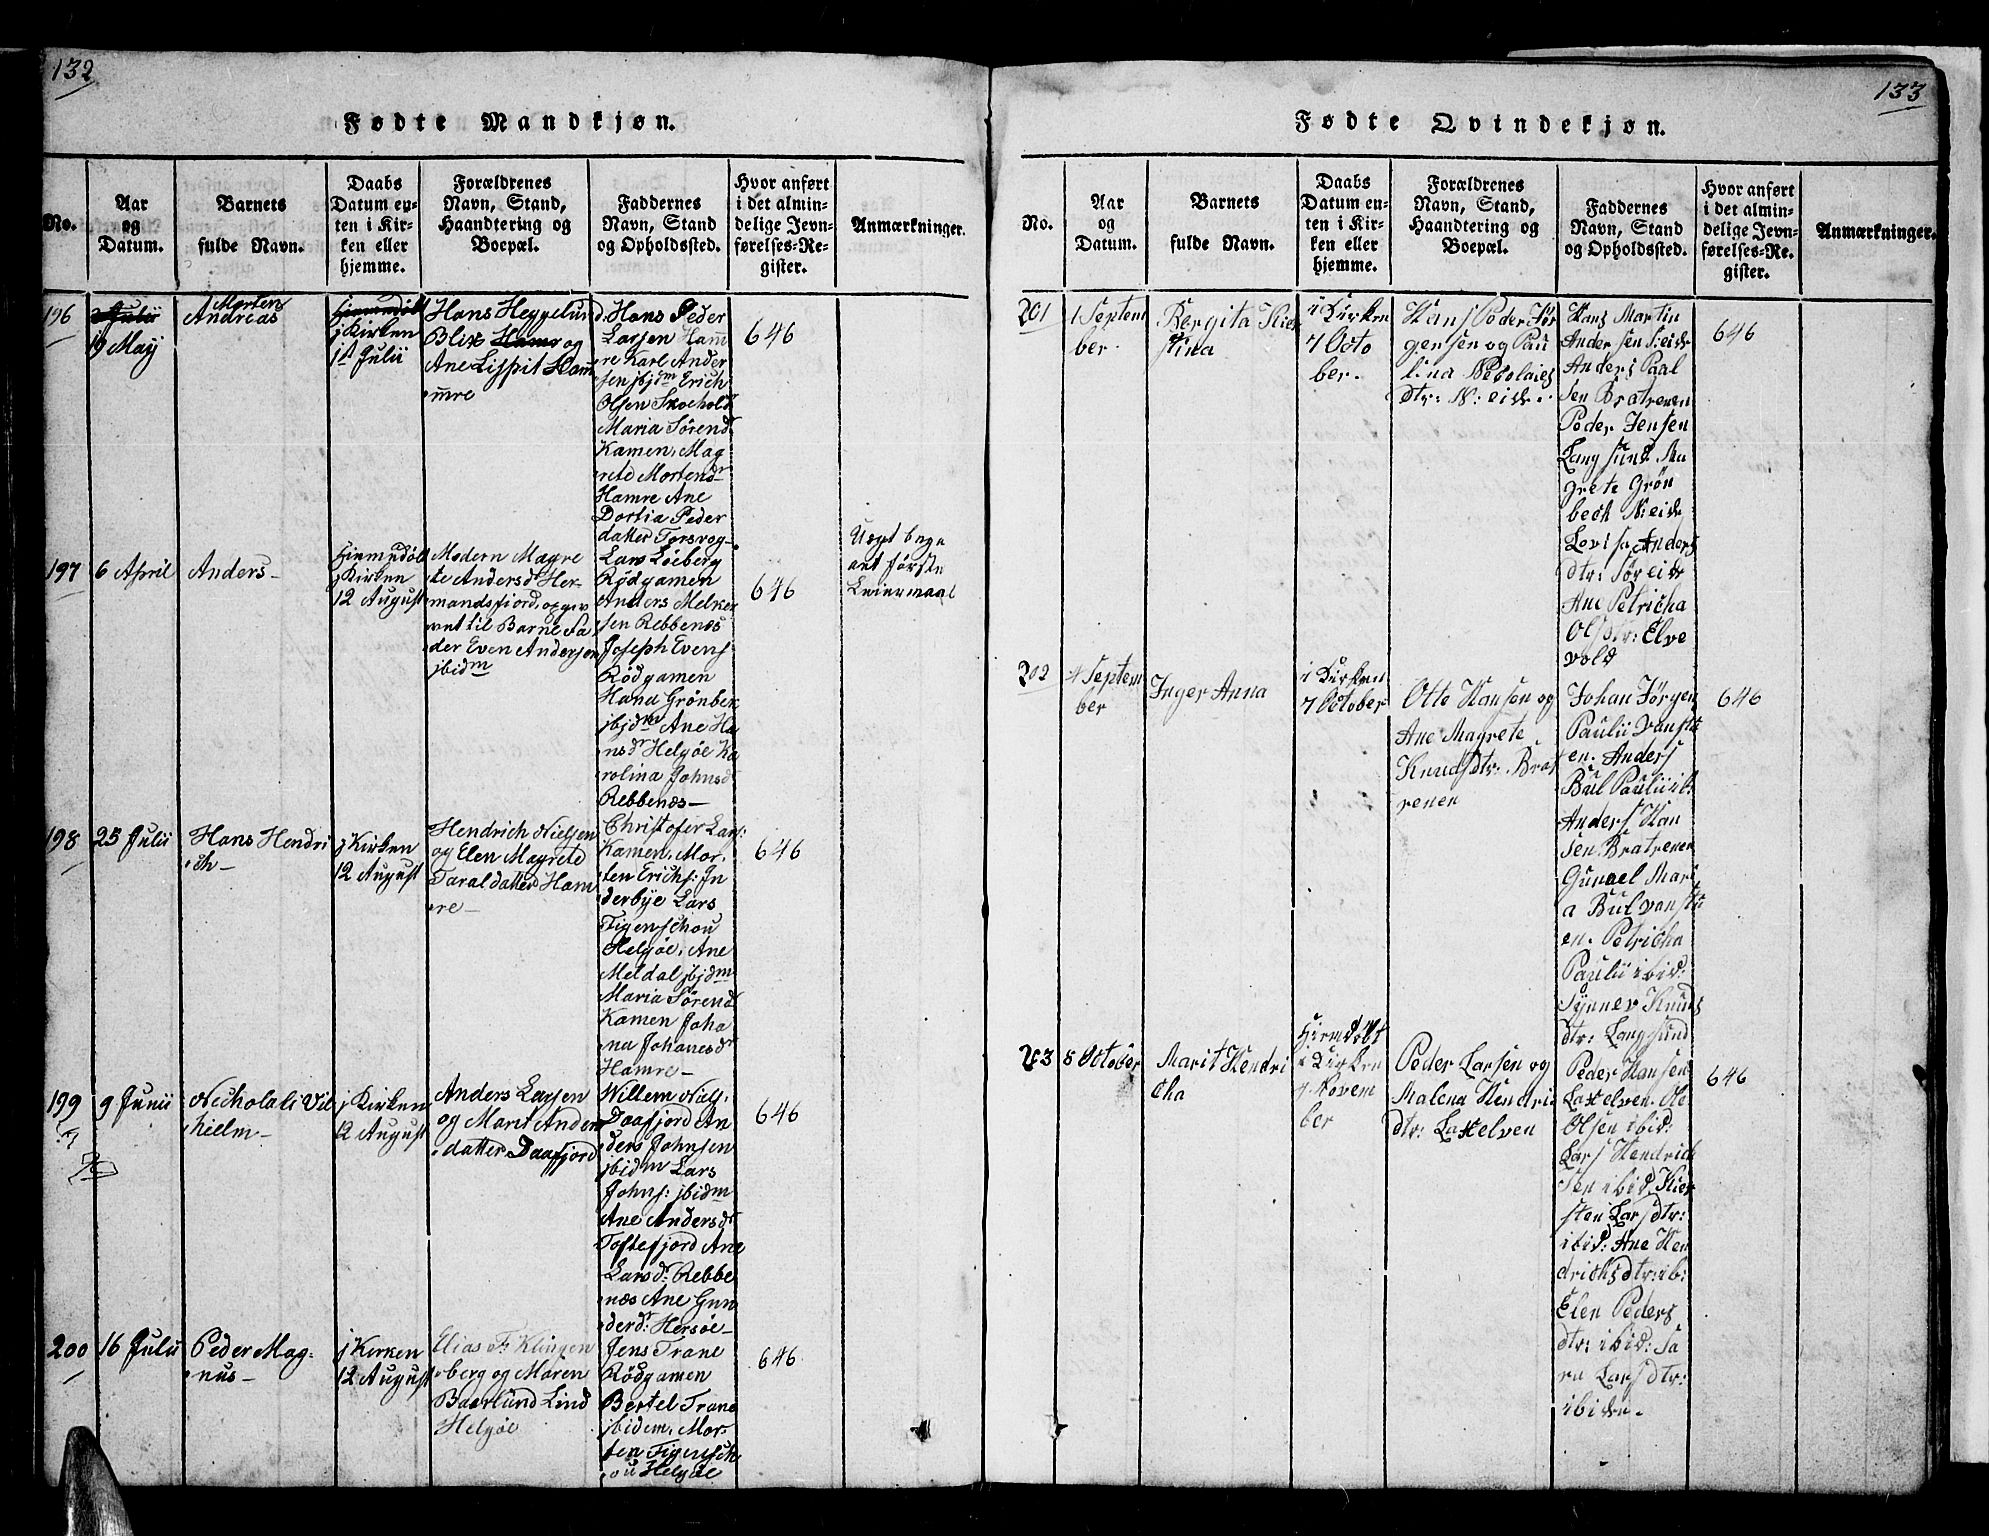 132
Fødte Mandkjøn.
No.
Aar
og
Datum.
Barnets
fulde Navn.
Daabs
Datum en-
ten i Kir-
ken eller
hjemme.
Forældrenes
Navn, Stand,
Haandtering og
Boepæl.
Faddernes
Navn, Stand
og Opholdssted.
Hvor anført
i det almin-
delige Jevn-
førelses-Re-
gister.
Anmærkninger.
196
2 Julii
19 Maij
Morten
Andreas
hiemmedøbt
j Kirken
1st Julii
Hans Heggelund
Blix Hamr og
Ane Lisspit Ham
mre
Hans Peder
Larsen Ham
re Karl Ander
sen jbjdm Erich
Olsen Skochold
Maria Sørend
Kamen, Mag
rete Mortend
Hamre Ane
Dortia Peder
datter Torsvog-
646
197
6 April
Anders-
hiemmedøbt
j Kirken
12 August
Modern Magre
te Andersdr Her-
mandsfiord, opgiv
ent til Barne Fa
der Even Andersen
jbidm
Lars Løeberg
Rödgamen
Anders Melker
sen Rebbenæs
Joseph Evens
Rödgamen
Hana Grönbek
jbjdm Ane Ha
nsdr Helgöe Ka
rolina Johnsd
Rebbenæs-
646
Uegt bege
aet første
Leiermaal
198
25 Julii
Hans Hendri
ch-
j Kirken
12 August
Hendrich Nielsen
og Elen Magrete
Taraldatter Ham
re-
Christofer Lars:
Kamen, Mor,
ten Erichs: In
derbye Lars
Figenschou
Helgöe, Ane
Meldal jbjdm
Maria Sörend
Kamen Joha
na Johanesdr
Hamre-
646
199
9 Junii
Nicholali Vil
hielm-
j Kirken
12 August
Anders Larsen
og Marit Anders
datter Daafjord
Willem Niels,
Daafjord An
ders Johnsen
jbidm Lars
Johns: jbidm
Ane Andersdr
Toftefjord Ane
Larsdr: Rebbe
næs Ane Gun
derd: Hersöe-
646
200
16 Julii
Peder Mag-
nus-
j Kirken
12 August
Elias F: Klingen
berg og Maren
Baerlund Lind
Helgöe
Jens Trane
Rödgamen
Bertel Trane
jbidem, Mor-
ten Figensch
ou Helgöe
646
133
Fødte Qvindekjøn.
No.
Aar
og
Datum.
Barnets
fulde Navn.
Daabs
Datum en-
ten i Kir-
ken eller
hjemme.
Forældrenes
Navn, Stand,
Haandtering og
Boepæl.
Faddernes
Navn, Stand
og Opholdssted.
Hvor anført
i det almin-
delige Jevn-
førelses-Re-
gister.
Anmærkninger.
201
1 Septem
ber
Bergita Kier
stina
i Kirken
7 Octo
ber.
Hans Peder Jör
gensen og Pau
lina Nicolaies
dtr: N: eide.
Hans Martin
Andersen N: eide
Anders Paal
sen Bratrenen
Peder Jensen
Lang sund Ma
grete Grön
bech N: eide
Lovisa Anders
dtr: Sör eide
Ane Petricha
Olsdtr: Elve
vold
646
202
4 Septem
ber
Inger Anna
i Kirken
7 October
Otto Hansen og
Ane Magrete
Knudsdtr: Brat
renen
Johan Jörgen
Paulii Vanstu
en. Anders
Bul Paulii ib:
Anders Han
sen Bratrenen
Gunael Mari
a Bul Vanstu
en. Petricha
Paulii ibid:
Synnev Knuds
dtr: Langsund
646
203
8 October
Marit Hendri
cha
Hjemdöbt
i Kirken
4 Novem
ber
Peder Larsen og
Malena Hendric
dtr: Laxelven
Peder Hansen
Laxelven. Ole
Olsen ibid:
Lars Hendrich
sen ibid. Kier
sten Larsdtr:
ibid: Ane Hen
drichsdtr: ib:
Elen Peders
dtr: ibid: Sa
ra Larsdtr:
ibide.
646